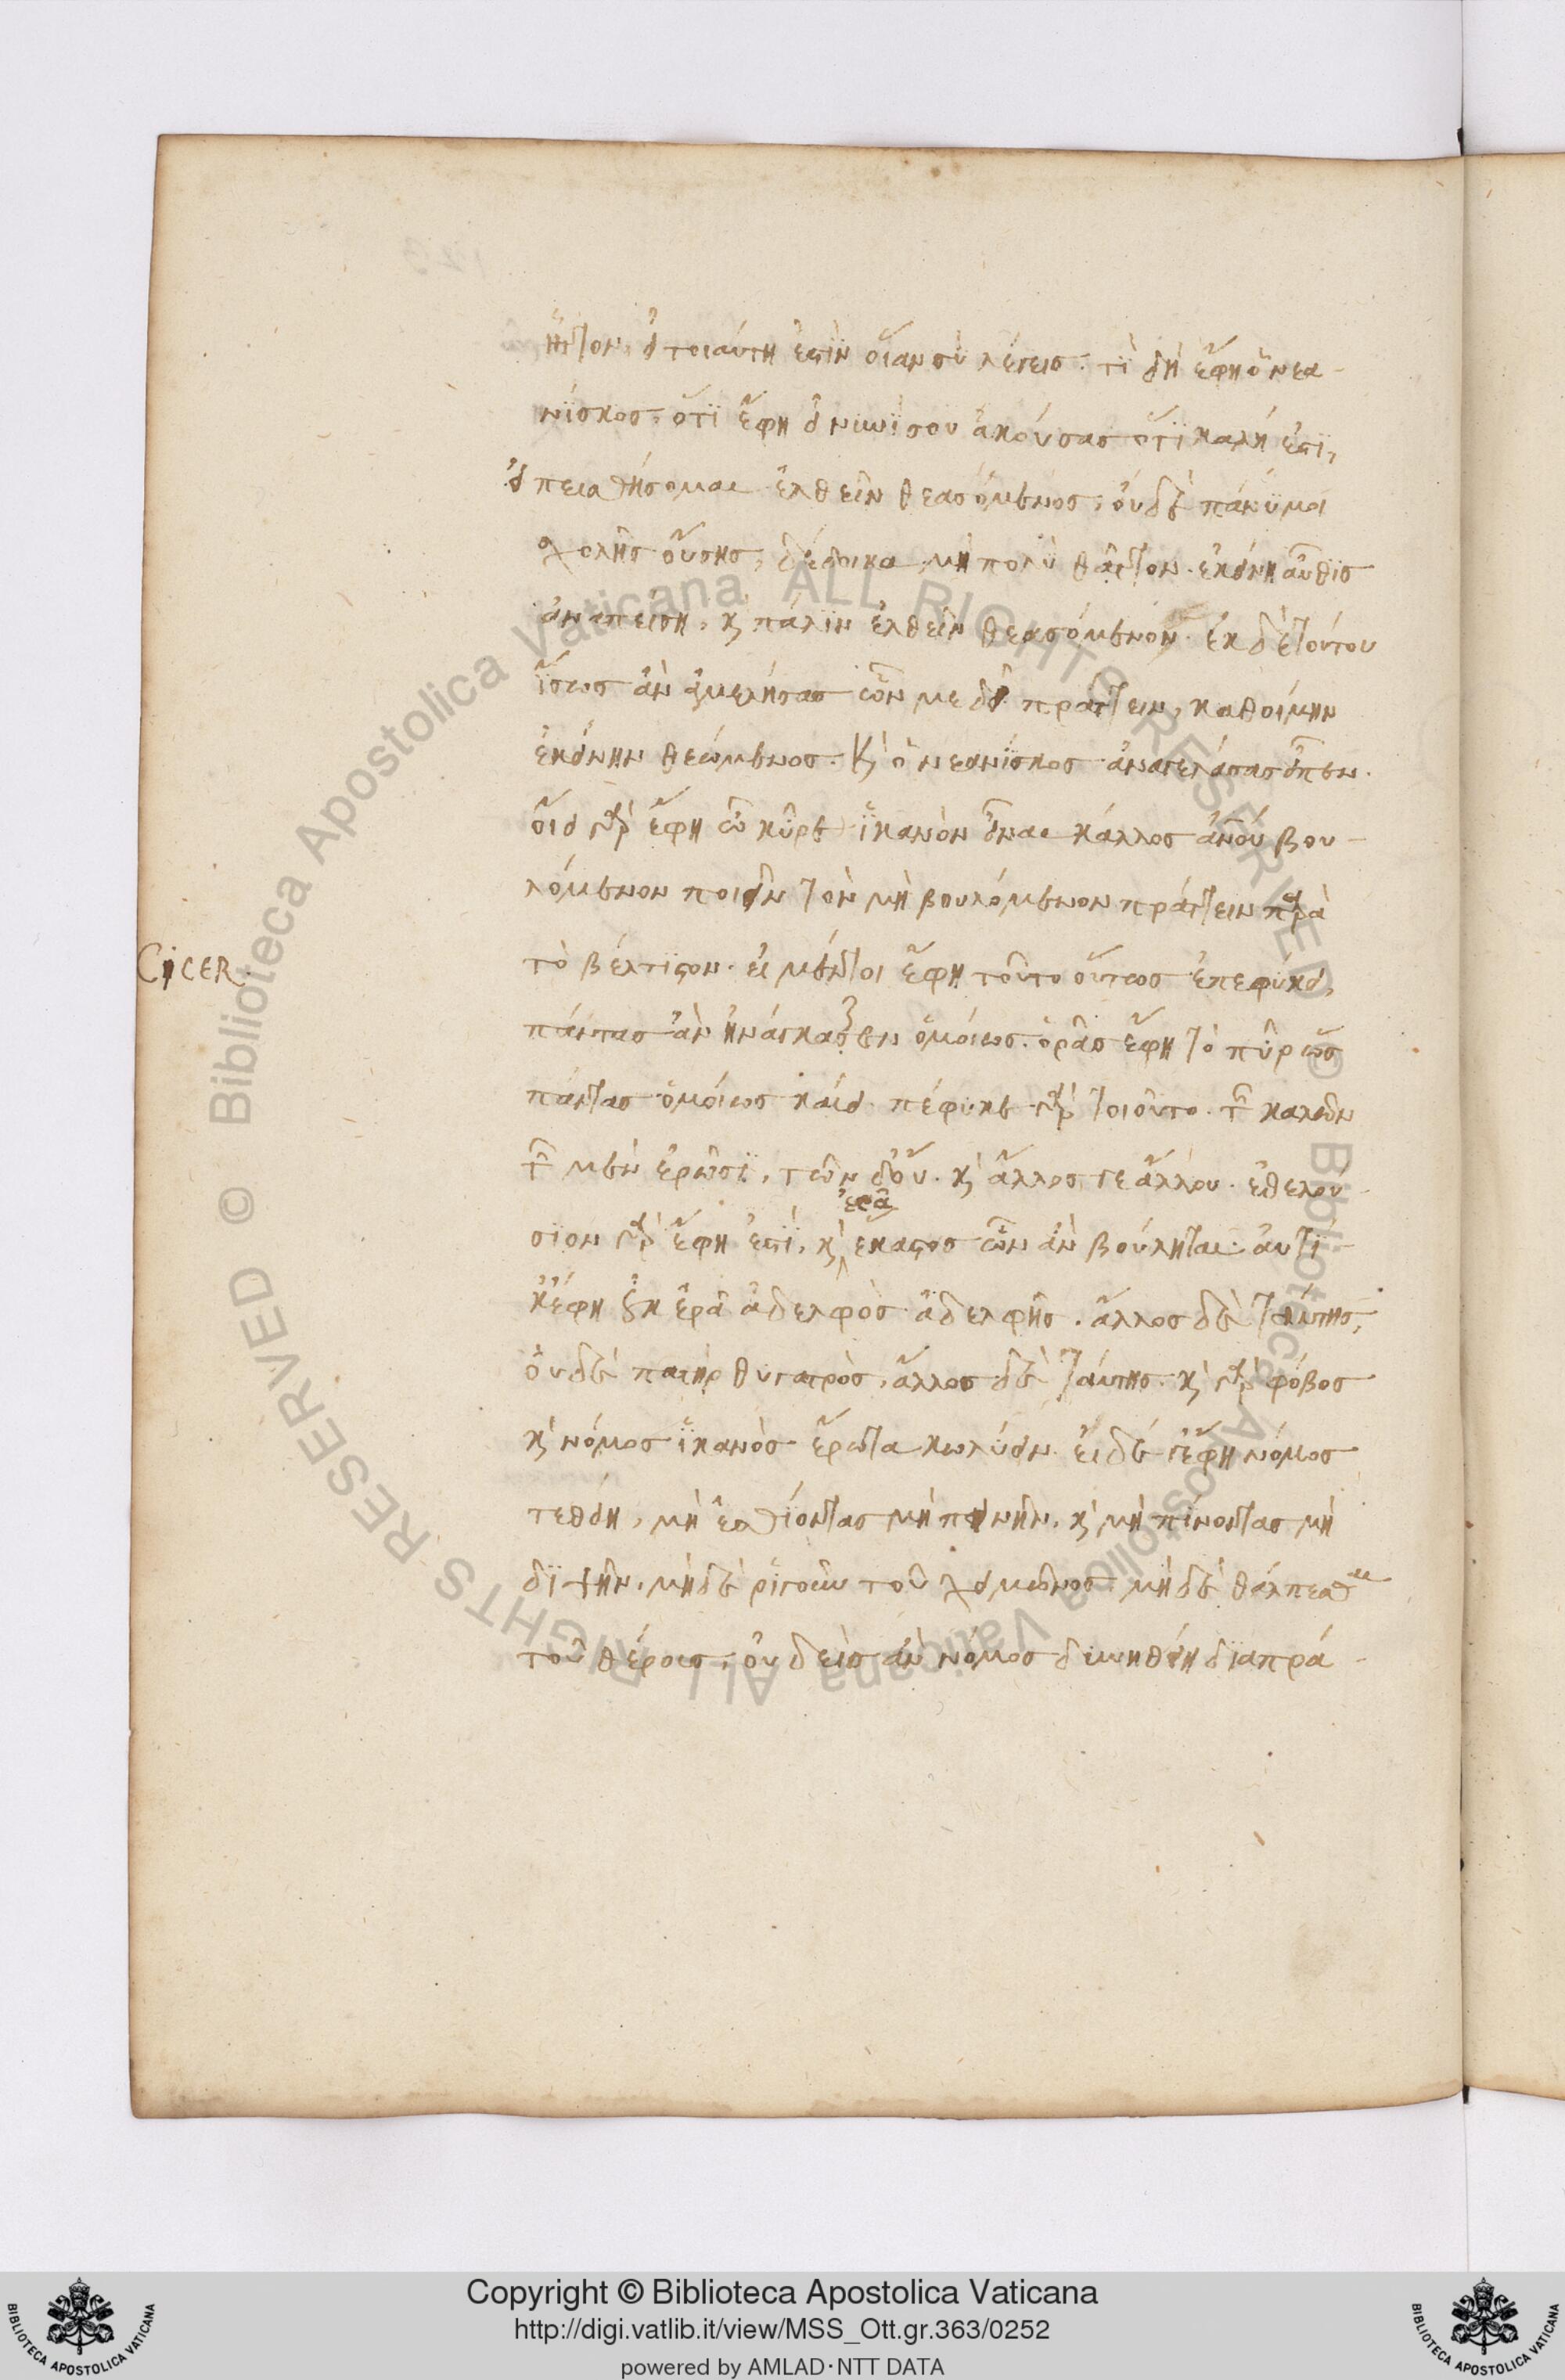 ἧττον, εἰ τοιαύτη ἐστὶν οἵαν σὺ λέγεις. τί δὴ ἔφη ὁ νεα-
νίσκος, ὅτι ἔφη εἰ νυνὶ σου ἀκούσας ὅτι καλή ἐστι,
εἰ πεισθήσομαι ἐλθεῖν θεασόμενος, οὐδὲ πάνυ μοι
σχολῆς οὔσης, δέδοικα μὴ πολὺ θᾶττον ἐκείνη αὖθις
ἀναπείση, καὶ πάλιν ἐλθεῖν θεασόμενον. ἐκ δὲ τούτου
ἴσως ἂν ἀμελήσας ὧν με δεῖ πράττειν, καθοίμην
ἐκείνην θεώμενος. Καὶ ὁ νεανίσκος ἀναγελάσας εἶπεν.
οἴει γὰρ ἔφη ὦ κῦρε ἱκανὸν εἶναι κάλλος ἀνου βου-
λόμενον ποιεῖν τὸν μὴ βουλόμενον πράττειν παρὰ
CICER.
τὸ βέλτιστον. εἰ μέντοι ἔφη τοῦτο οὕτως ἐπεφύκει,
πάντας ἂν ἠνάγκαζεν ὁμοίως. ὁρᾶς ἔφη τὸ πῦρ ὡς
πάντας ὁμοίως καίει. πέφυκε γὰρ τοιοῦτο. τῶν καλῶν
τῶν μὲν ἐρῶσι, τῶν δ' οὔ. καὶ ἄλλος γε ἄλλου. ἐθελού-
σιον γὰρ ἔφη ἐστί, καὶ ἐρᾷ ἕκαστος ὧν ἂν βούληται. αὐτί-
κ' ἔφη οὐκ ἐρᾷ ἀδελφὸς ἀδελφῆς. ἄλλος δὲ ταύτης,
οὐδὲ πατὴρ θυγατρὸς, ἄλλος δὲ ταύτης. καὶ γὰρ φόβος
καὶ νόμος ἱκανὸς ἔρωτα κωλύειν. εἰ δέ γ' ἔφη νόμος
τεθείη, μὴ ἐσθίοντας μὴ πεινῆν. καὶ μὴ πίνοντας μὴ
διψῆν. μηδὲ ῥιγοῦν τοῦ χειμῶνος. μηδὲ θάλπεσθαι
τοῦ θέρους, οὐδεὶς ἂν νόμος δυνηθείη διαπρά-
Copyright © Biblioteca Apostolica Vaticana
http://digi.vatlib.it/view/MSS_Ott.gr.363/0252
powered by AMLAD·NTT DATA
BIBLIOTECA APOSTOLICA VATICANA
BIBLIOTECA APOSTOLICA VATICANA
© Biblioteca Apostolica Vaticana ALL RIGHTS RESERVED
© Biblioteca Apostolica Vaticana ALL RIGHTS RESERVED